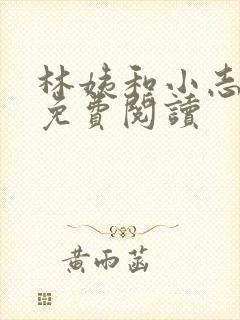 林姨和小志
免費閱讀
黃雨菡